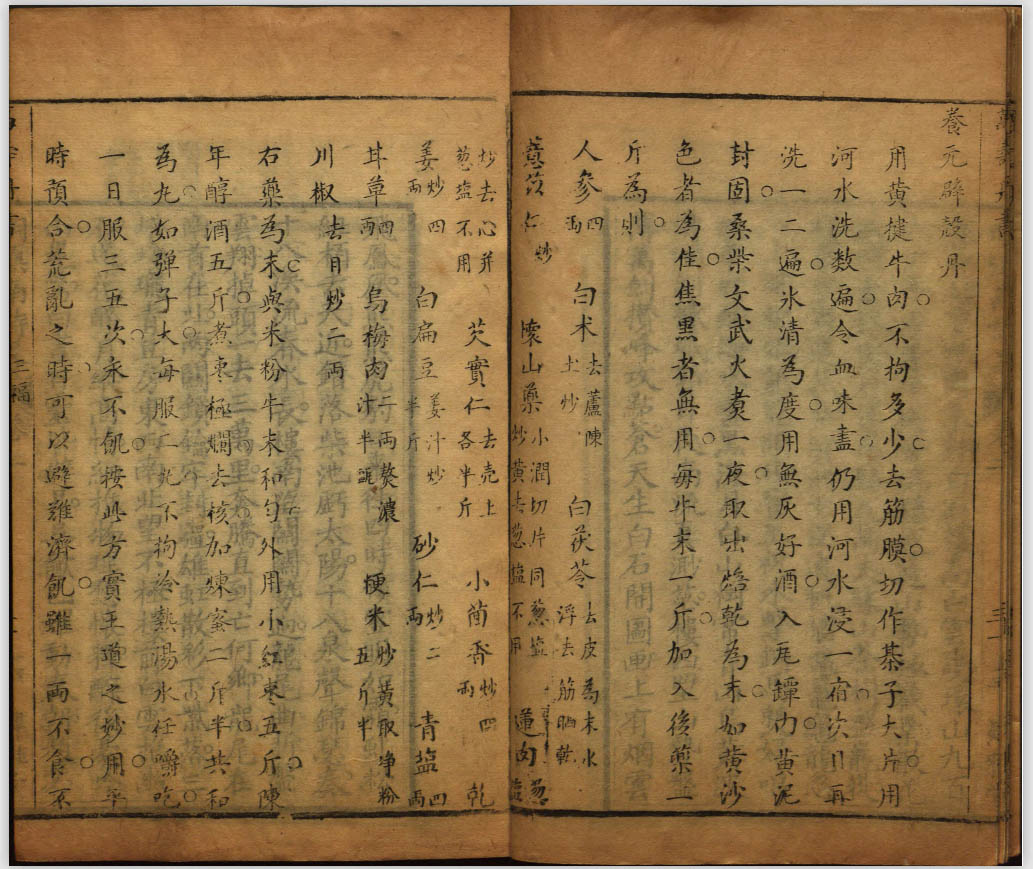 養元辟穀丹
用黃犍牛肉不拘多少去筋膜切作棊子大片用
河水洗數遍令血味盡仍用河水浸一宿次日再
洗一二遍氷清為度用無灰好酒入瓦罈內黃泥
封固桑柴文武火煑一夜取出焙乾為末如黃沙
色者為佳焦黑者無用每牛末一斤加入後藥一
斤為則
人參四兩 白术去蘆陳土炒 白茯苓去皮為末水浮去筋晒乾
薏苡仁炒 懷山藥小潤切片同葱塩炒黃去葱塩不用 蓮肉葱塩
炒去心并葱塩不用 芡實仁去壳上各半斤 小茴香炒四兩 乾
姜炒四兩 白扁豆姜汁炒半斤 砂仁炒二兩 青塩四兩
甘草四兩 烏梅肉二兩熬濃汁半甌 粳米炒黃取净粉五斤半
川椒去目炒二兩
右藥為末與米粉牛末和勻外用小紅棗五斤陳
年醇酒五斤煮棗極爛去核加煉蜜二斤半共和
為丸如彈子大每服一丸不拘冷熱湯水任嚼吃
一日服三五次永不飢按此方實王道之妙用平
時預合荒亂之時可以避難濟飢雖一兩不食不